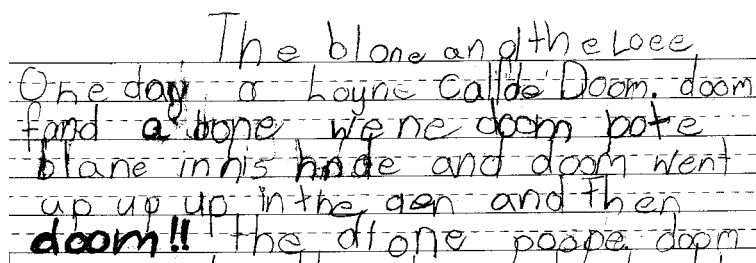 The blone and the Loee
One day a hoyne Callde Doom. doom
fand a bone wene doom pote
blane in his hnde and doom went
up up up in the aen and then
doom!! the dtone poope doom